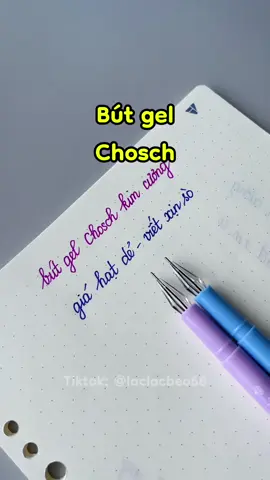 Bút gel
Chosch
bút gel Chosch kim cương
giá hạt dẻ - viết xịn sò
Tiktok: @laclacbeo56